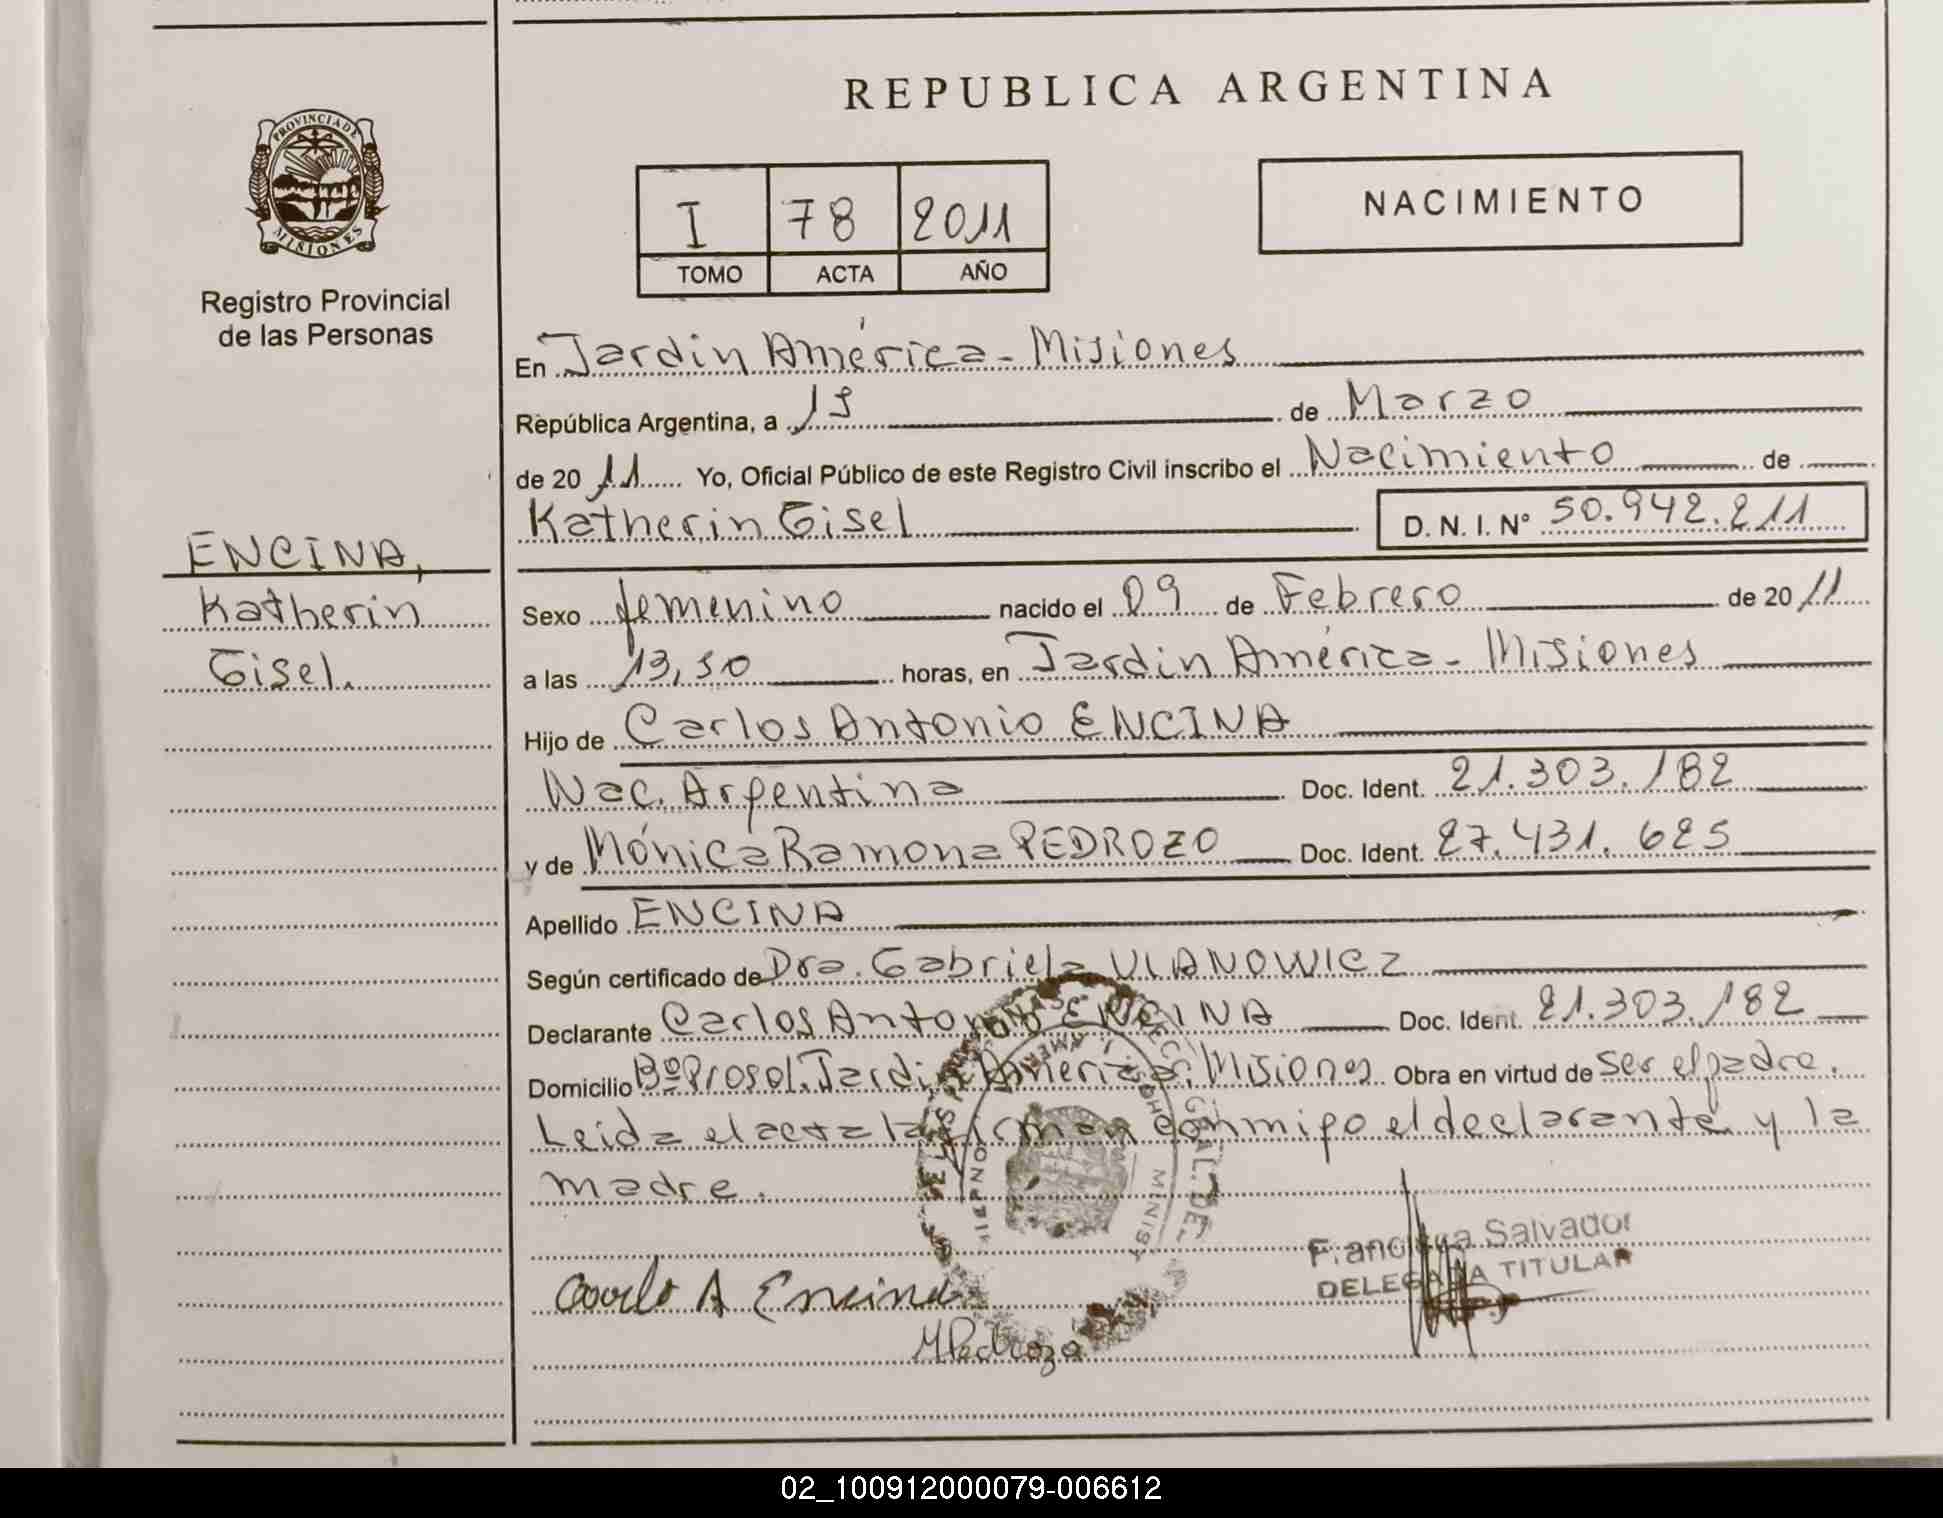 REPUBLICA ARGENTINA
PROVINCIA DE
MISIONES
Registro Provincial
de las Personas
I 78 2011
TOMO ACTA AÑO
NACIMIENTO
En Jardin América - Misiones
República Argentina, a de Marzo
de 20 11 Yo, Oficial Público de este Registro Civil inscribo el Nacimiento de
Katherin Gisel D. N. I. N° 50.942.211
ENCINA,
Katherin
Gisel.
Sexo femenino nacido el 09 de Febrero de 20 11
a las horas, en Jardin América - Misiones
Hijo de Carlos Antonio ENCINA
Nac. Argentina Doc. Ident. 21.303.182
y de Mónica Ramona PEDROZO Doc. Ident. 27.431.625
Apellido ENCINA
Según certificado de Dra. Gabriela ULANOWICZ
Declarante Carlos Antonio ENCINA Doc. Ident. 21.303.182
Domicilio Bº Prosol. Jardin América. Misiones Obra en virtud de ser el padre.
Leida el acta la firman conmigo el declarante y la
madre.
Salvador
DELEGADA TITULAR
Carlos A Encina
MPedrozo
02_100912000079-006612